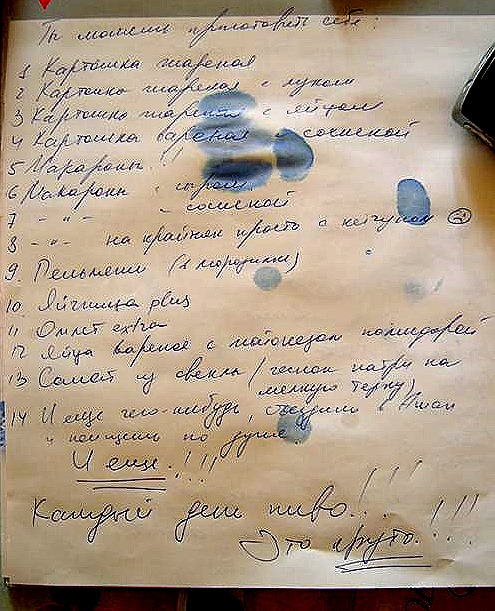 Ты можешь приготовить себе:
1 Картошка жареная
2 Картошка жареная с луком
3 Картошка жареная с яйцом
4 Картошка вареная сосиской
5 Макароны!!
6 Макароны с сыром
7 - " - - сосиской
8 - " - на крайняк просто с кетчупом
9. Пельмени (в морозилке)
10. Яичница plus
11 Омлет extra
12 Яйца вареное с майонезом помидорой
13 Салат из свеклы (чеснок натри на
мелкую терку)
14 И еще чего-нибудь, сходить в Ашан
и поищешь по душе.
И еще!!!
Каждый день пиво...!!!
Это круто...!!!